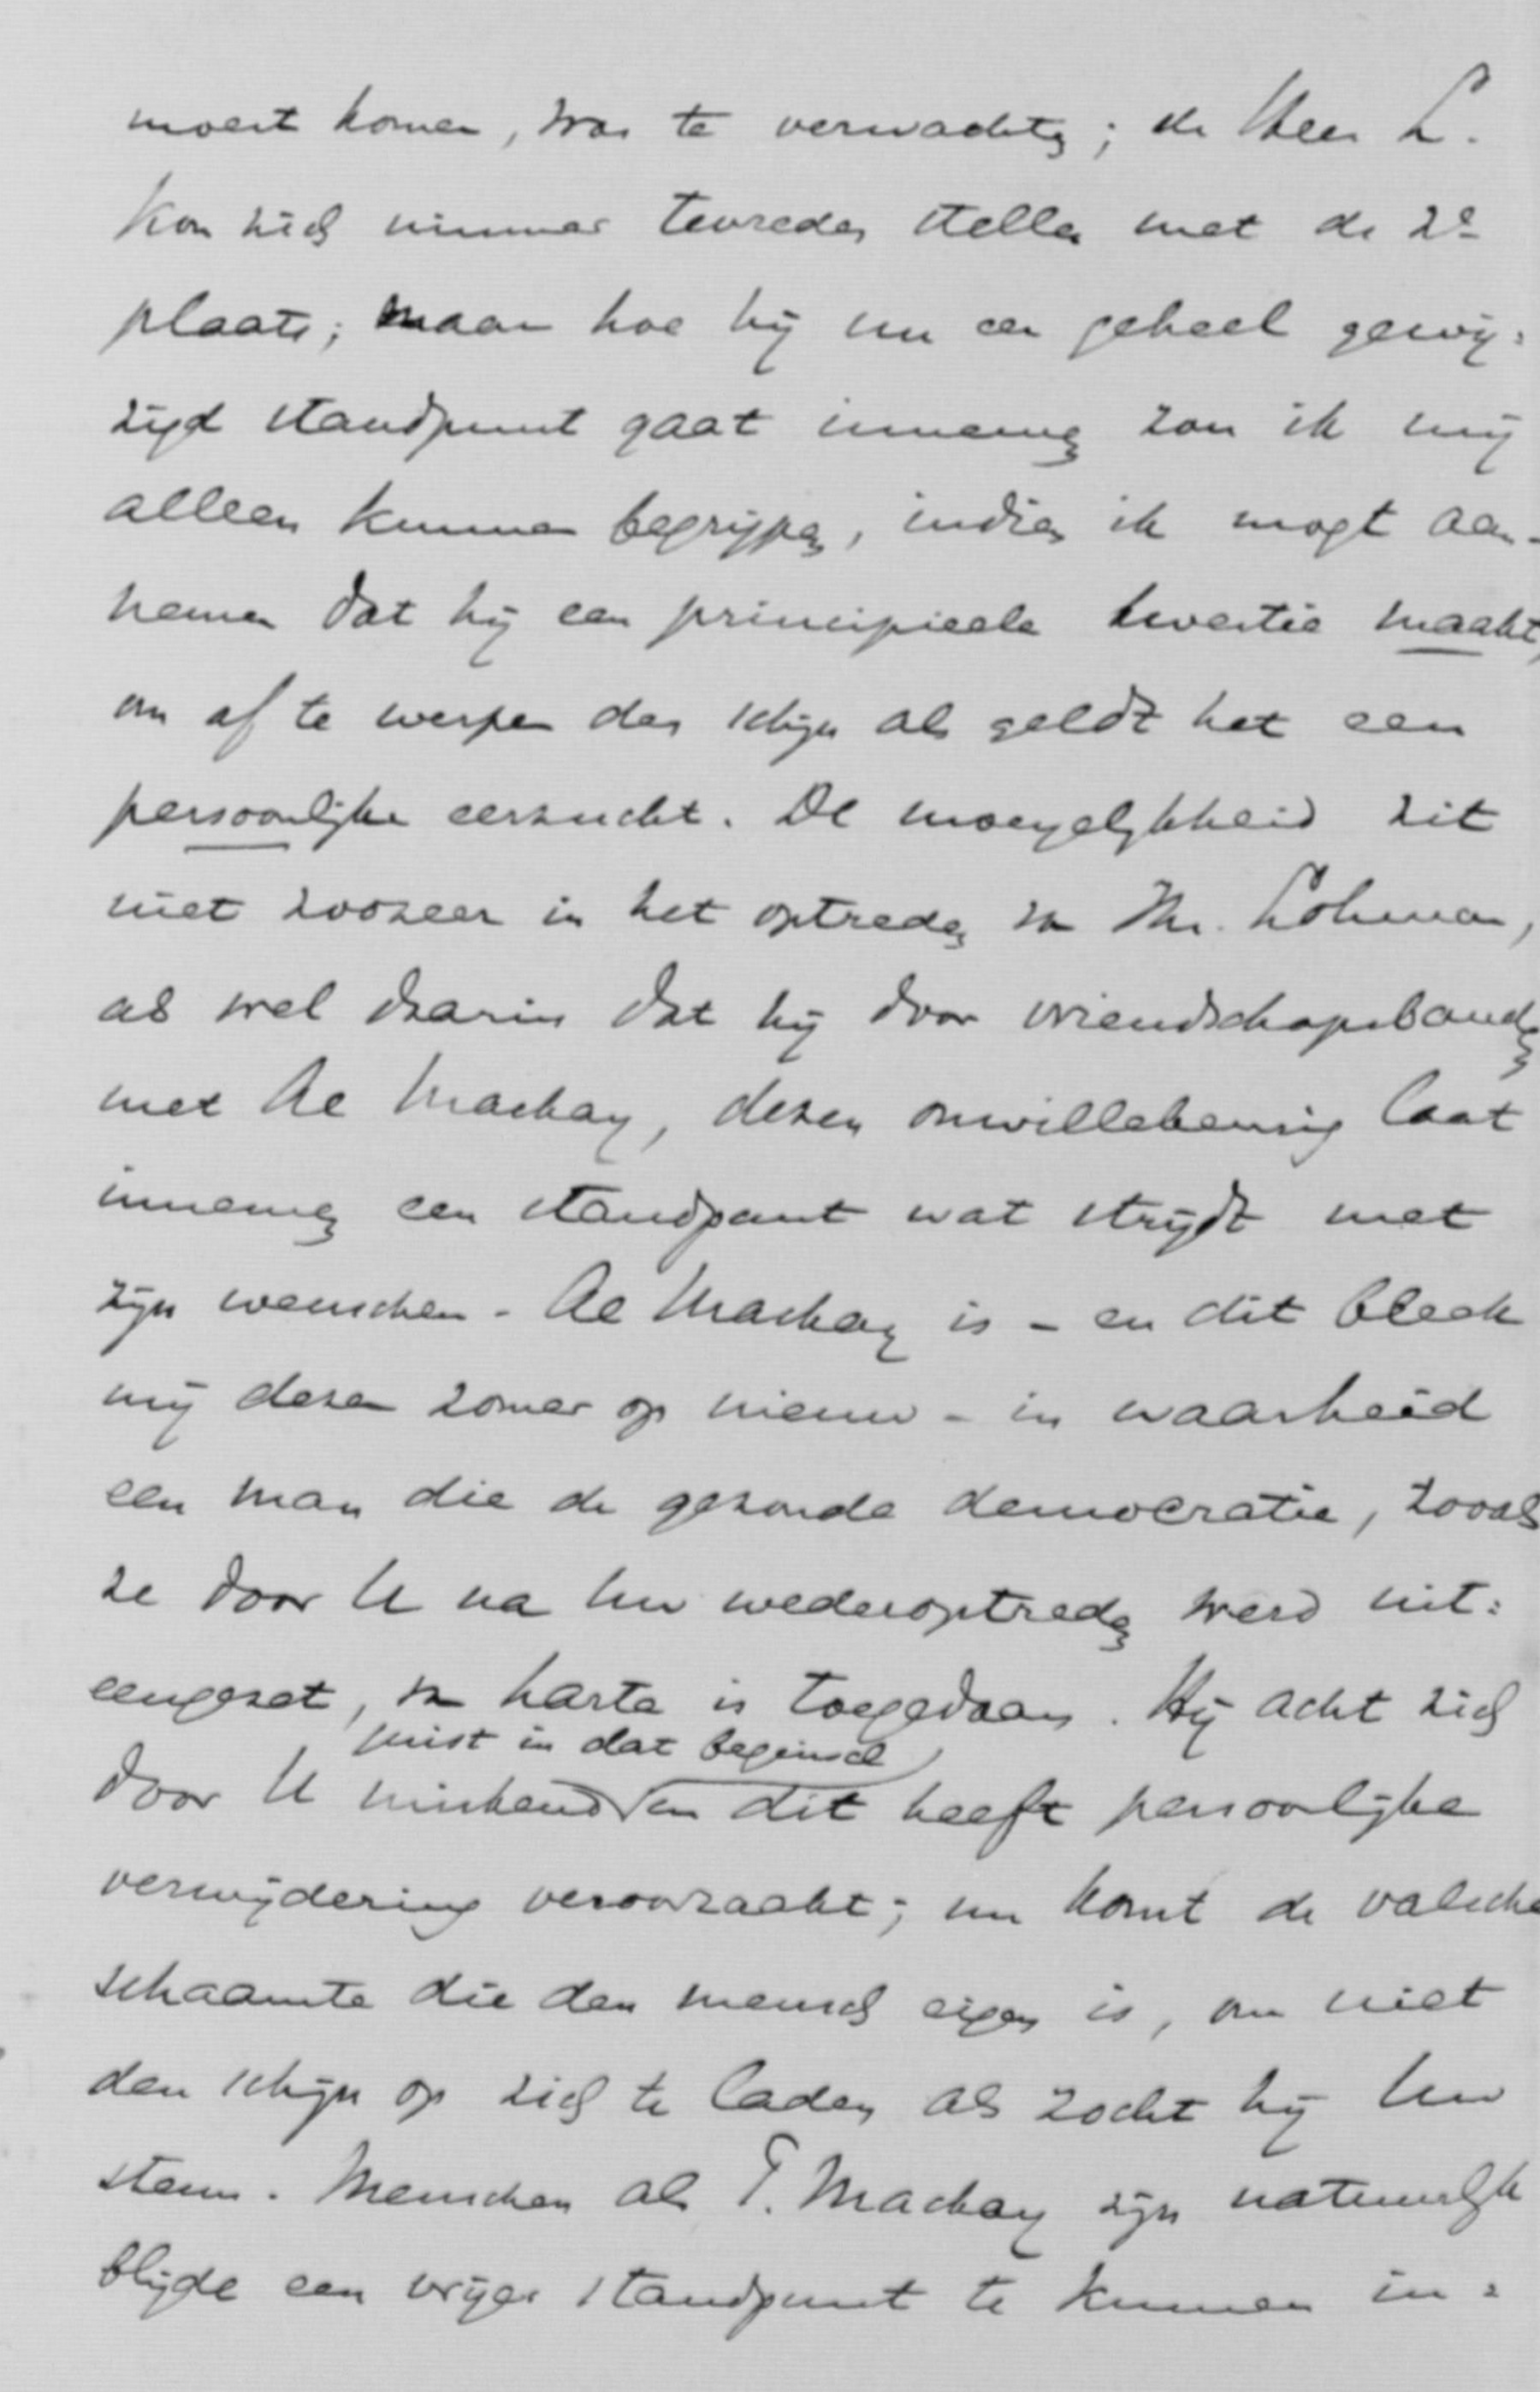 moest komen, was te verwachten; de Heer L.
kon zich nimmer tevreden stellen met de 2e
plaats; maar hoe hij nu een geheel gewij:
zigd standpunt gaat innemen zou ik mij
alleen kunnen begrijpen, indien ik mogt aan-
nemen dat hij een principieele kwestie maakt,
om af te werpen den schijn als geldt het een
persoonlijke eerzucht. De moeyelykheid zit
niet zoozeer in het optreden van Mr. Lohman,
als wel daarin dat hij door vriendschapsbanden
met Ae Mackay, dezen onwillekeurig laat
innemen een standpunt wat strijdt met
zijn wenschen - Ae Mackay is - en dit bleek
mij dezen zomer op nieuw - in waarheid
een man die de gezonde democratie, zooals
ze door U na Uw wederoptreden werd uit:
eengezet, van harte is toegedaan. Hij acht zich
juist in dat beginsel
door U miskend en dit heeft persoonlijke
verwijdering veroorzaakt; nu komt de valsche
schaamte die den mensch eigen is, om niet
den schijn op zich te laden als zocht hij Uw
steun. Menschen als T. Mackay zijn natuurlijk
blijde een vrijer standpunt te kunnen in: